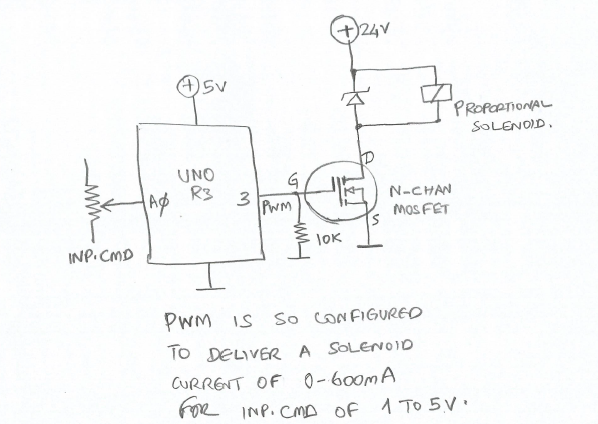 24V
5V
PROPORTIONAL
SOLENOID.
UNO
R3
AΦ
3
PWM
G
D
S
N-CHAN
MOSFET
10K
INP.CMD
PWM IS SO CONFIGURED
TO DELIVER A SOLENOID
CURRENT OF 0-600mA
FOR INP.CMD OF 1 TO 5V.